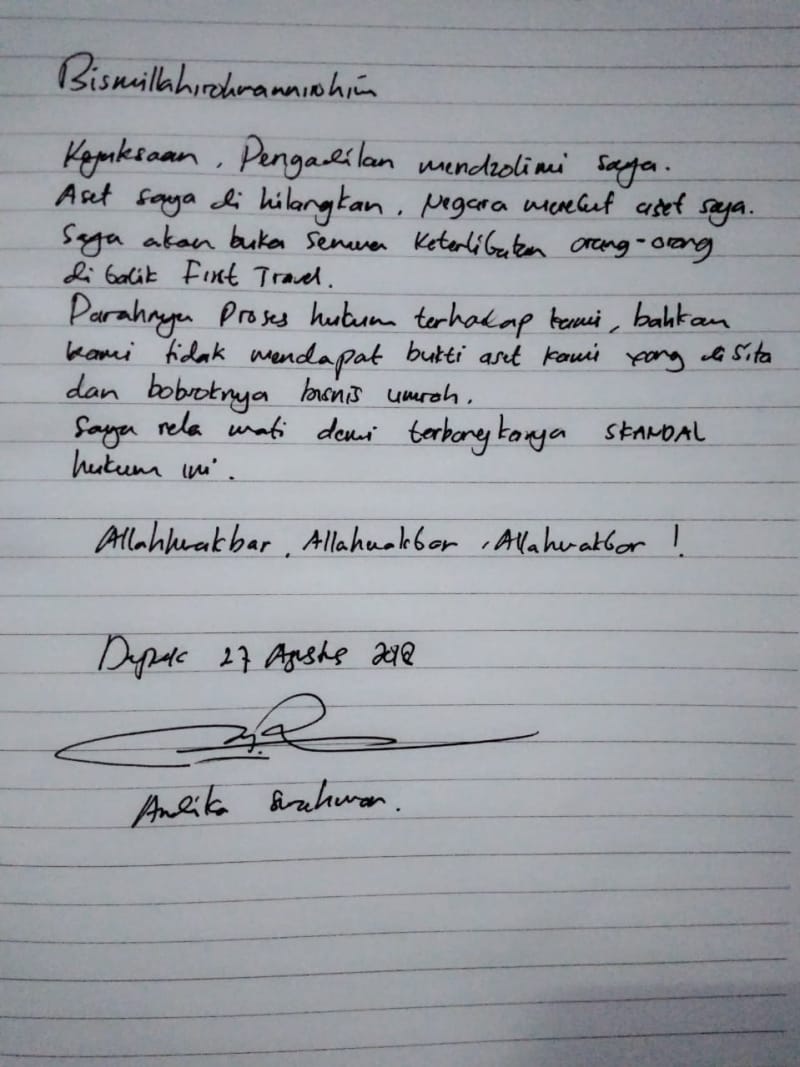 Bismillahirohmannirohim
Kejaksaan, Pengadilan mendzolimi saya.
Aset saya di hilangkan, Negara merebut aset saya.
Saya akan buka semua keterlibatan orang-orang
di balik First Travel.
Parahnya Proses hukum terhadap kami, bahkan
kami tidak mendapat bukti aset kami yang di sita
dan bobroknya bisnis umroh.
Saya rela mati demi terbongkarnya SKANDAL
hukum ini.
Allahhuakbar, Allahuakbar, Allahuakbar !
Depok 27 Agustus 2018
Andika Surahman.